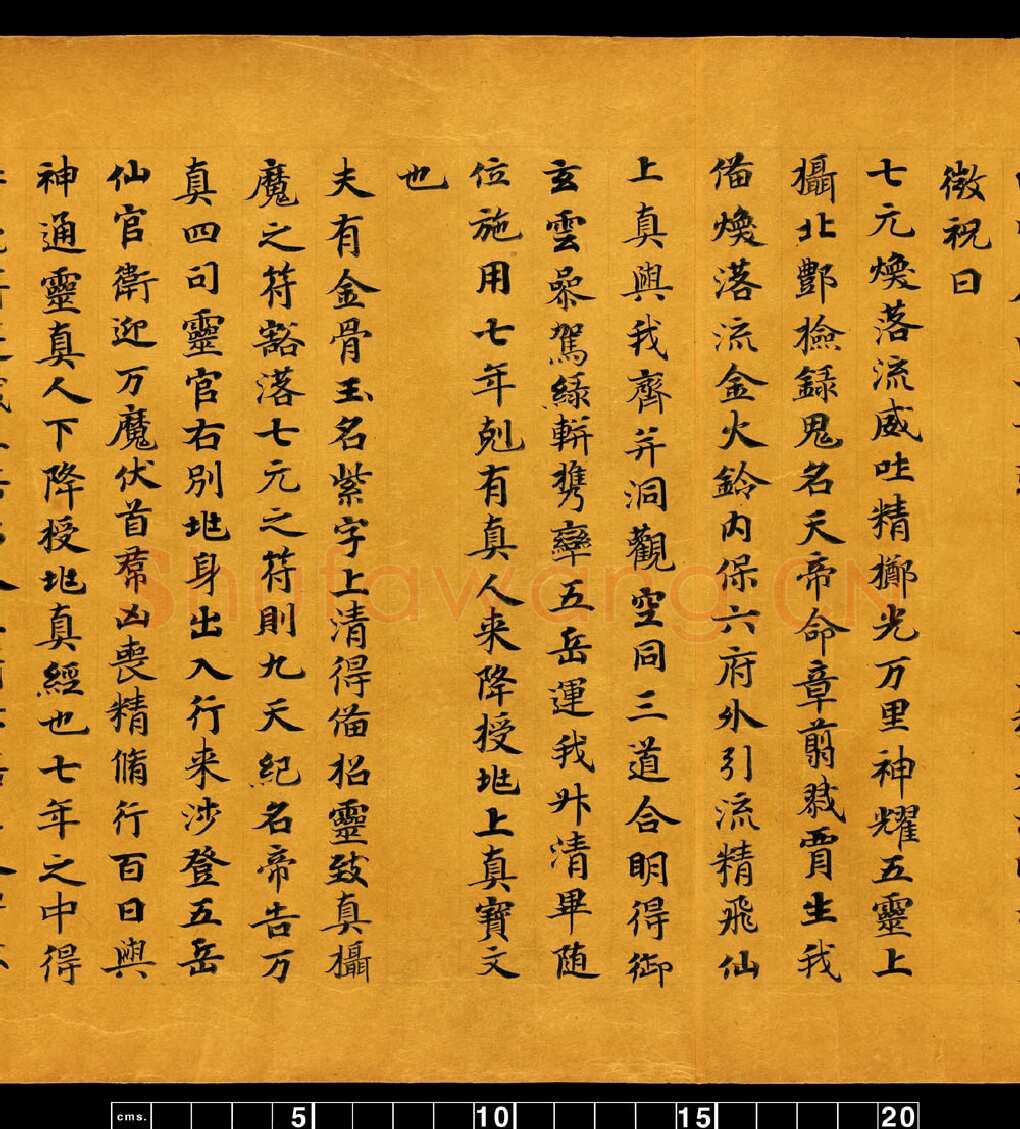 微祝曰
七元煥落流威吐精擲光万里神耀五靈上
攝北酆檢録鬼名天帝命章翦戮賈生我
俻煥落流金火鈴内保六府外引流精飛仙
上真與我齊并洞觀空同三道合明得御
玄雲飛駕緑軿攜宴五岳運我升清畢随
位施用七年剋有真人来降授兆上真寶文
也
夫有金骨玉名紫字上清得俻招靈致真攝
魔之符豁落七元之符則九天紀名帝告万
真四司靈官右別兆身出入行来涉登五岳
仙官衛迎万魔伏首群凶喪精脩行百日與
神通靈真人下降授兆真經也七年之中得
Shufawang.CN
cms. 5 10 15 20